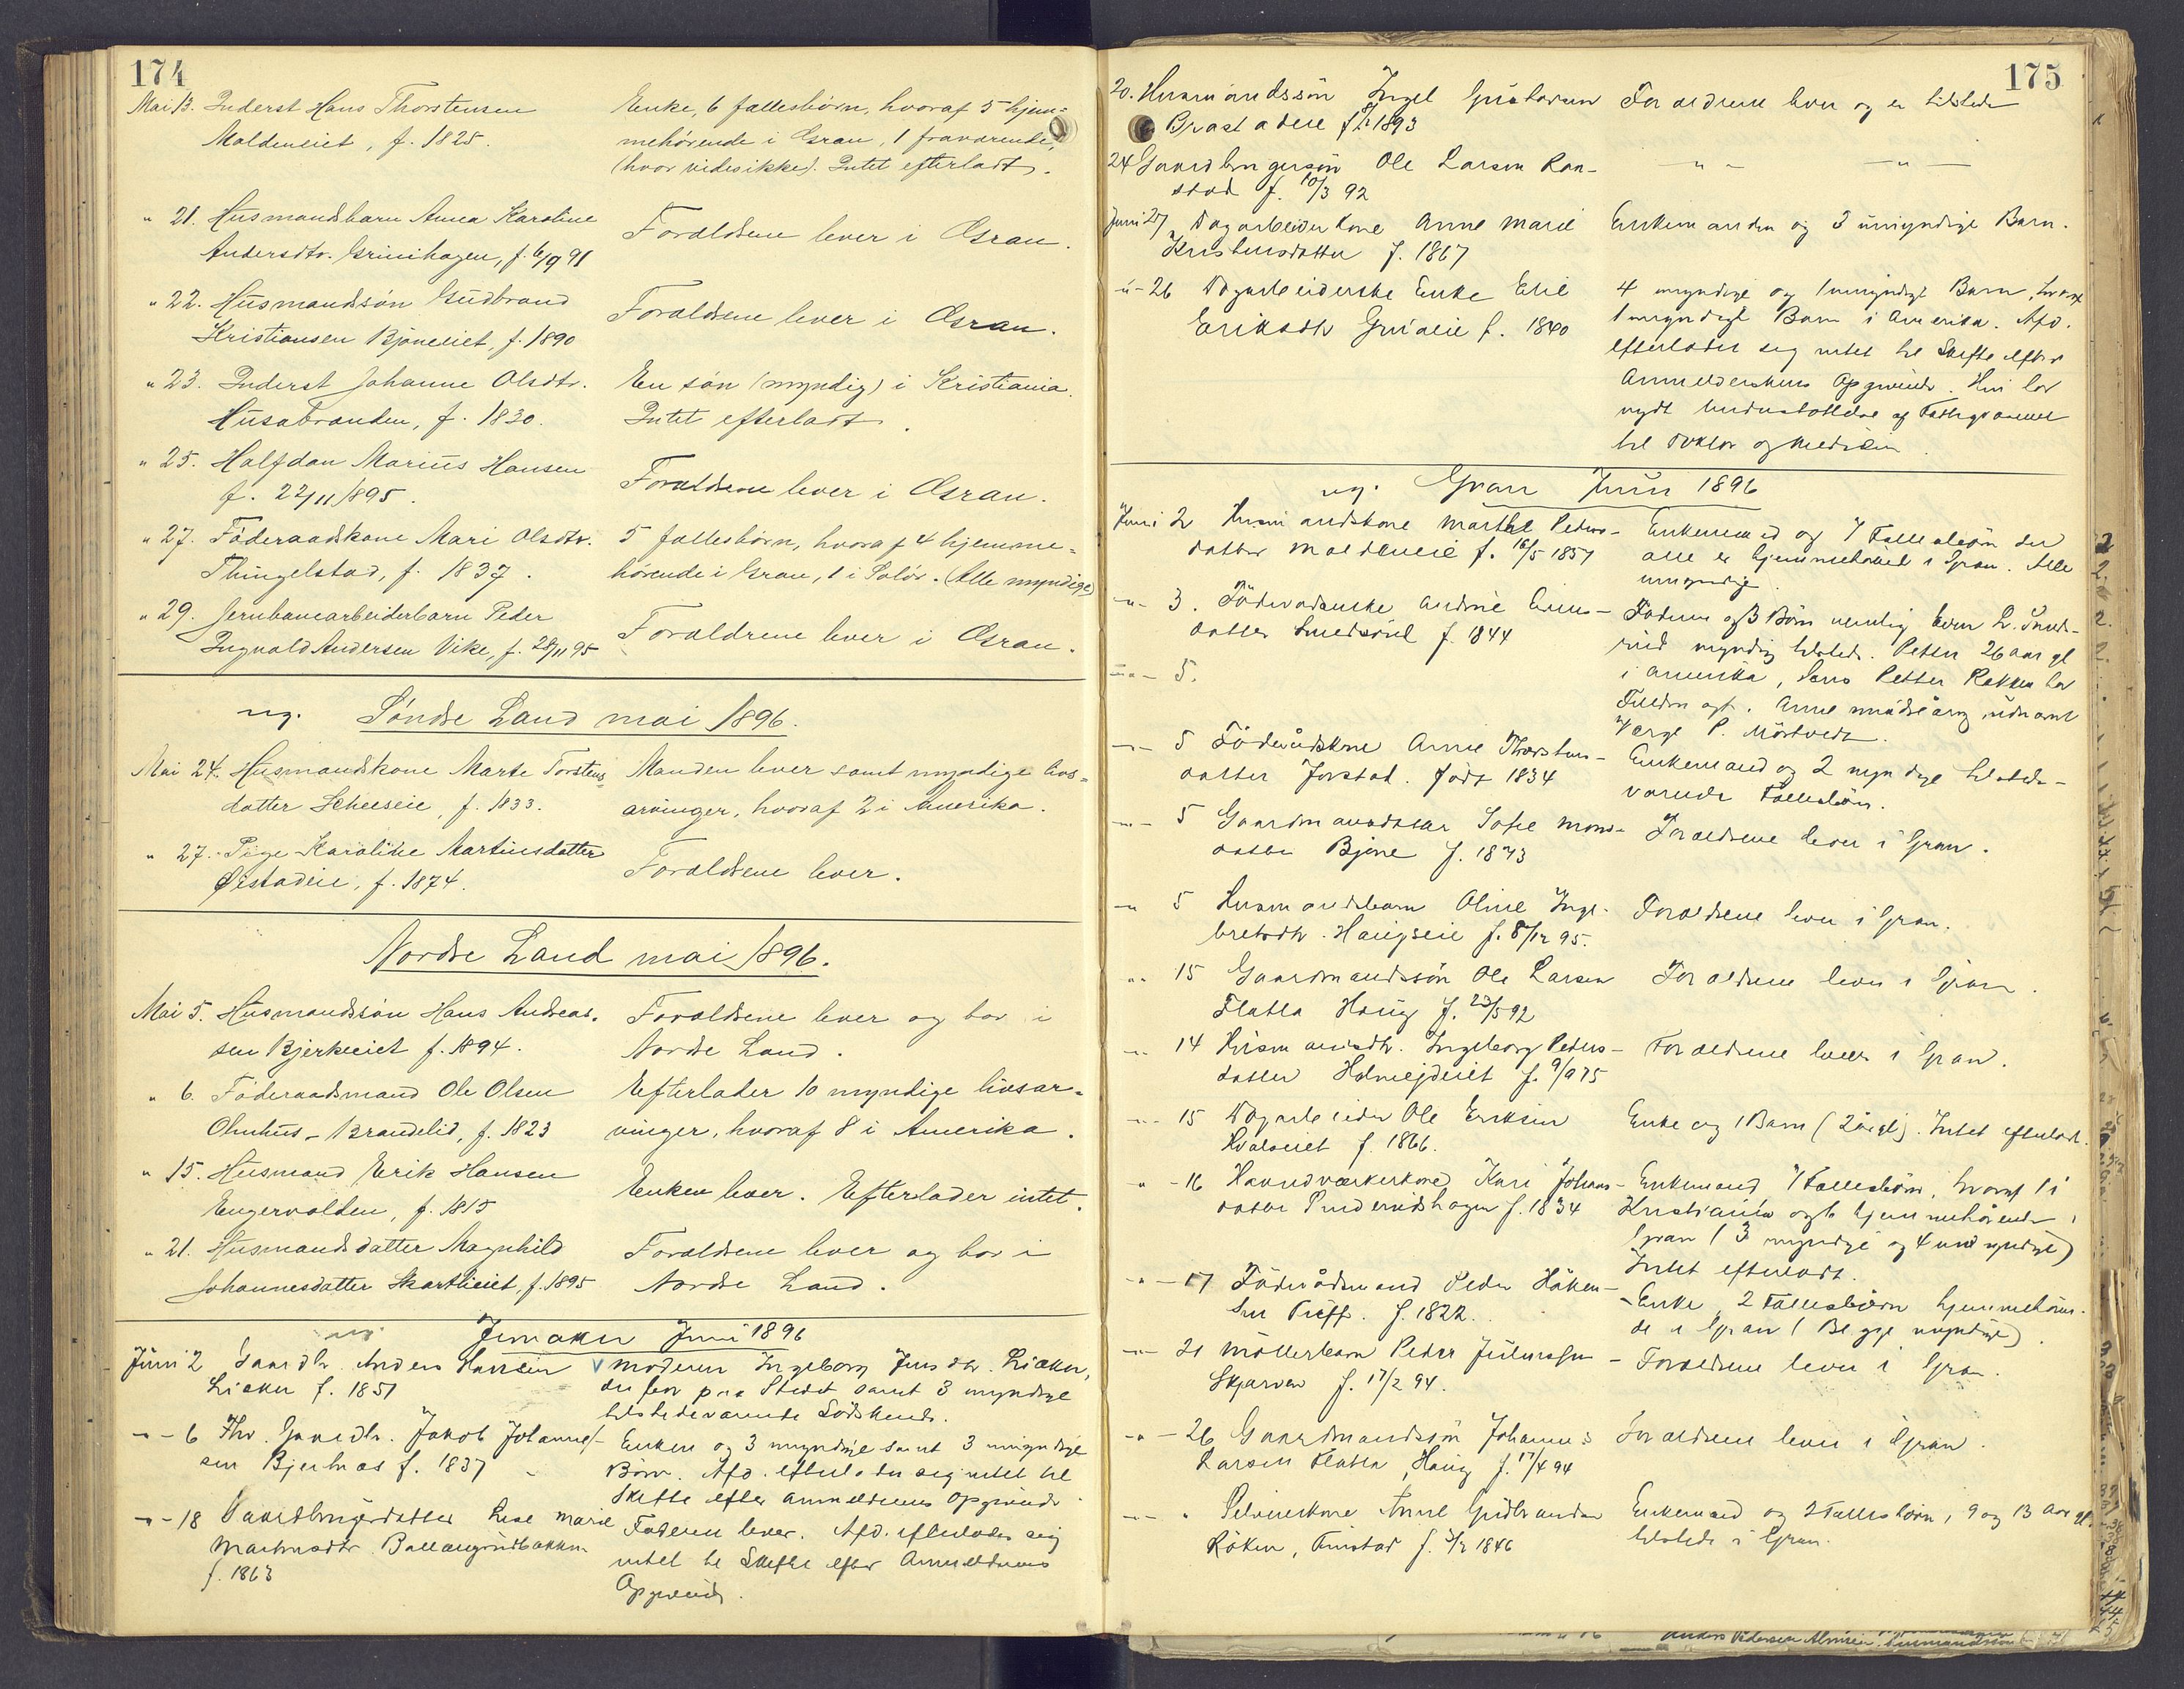 174
Mai 13. Inderst Hans Thorstensen
Moldeneiet, f. 1825.
Enke, 6 fællesbørn, hvoraf 5 hjem=
mehørende i Gran, 1 fraværende,
(hvor vides ikke). Intet efterladt.
" 21. Husmandsbarn Anna Karoline
Andersdtr. Grinihagen, f. 6/9 91
Forældrene lever i Gran.
" 22. Husmandssøn Gudbrand
Kristiansen Bjøneeiet, f. 1890
Forældrene lever i Gran.
" 23. Inderst Johanne Olsdtr.
Husabranden, f. 1830.
En søn (myndig) i Kristiania.
Intet efterladt.
" 25. Halfdan Marius Hansen
f. 22/11 1895.
Forældrene lever i Gran.
" 27. Føderaadskone Mari Olsdtr.
Thingelstad, f. 1837.
5 fællesbørn, hvoraf 4 hjemme=
hørende i Gran, 1 i Solør. (Alle myndige)
" 29. Jernbanearbeiderbarn Peder
Ingvald Andersen Vike, f. 28/11 95
Forældrene lever i Gran.
Søndre Land mai 1896.
Mai 24. Husmandskone Marte Torstens=
datter Scheseie, f. 1833.
Manden lever samt myndige livs=
arvinger, hvoraf 2 i Amerika.
" 27. Pige Karoline Martinsdatter
f. 1874.
Forældrene lever.
Nordre Land mai 1896.
Mai 5. Husmandssøn Hans Andreas-
sen Bjerkeeiet f. 1894.
Forældrene lever og bor i
Nordre Land.
" 6. Føderaadsmand Ole Olsen
Olmhus-Brandelid, f. 1823
Efterlader 10 myndige livsar=
vinger, hvoraf 8 i Amerika.
" 15. Husmand Erik Hansen
Engervolden, f. 1815
Enken lever. Efterlader intet.
" 21. Husmandsdatter Magnhild
Johannesdatter Skartlieiet, f. 1895
Forældrene lever og bor i
Nordre Land.
Jevnaker Juni 1896
Juni 2 Gaardbr. Anders Hansen
f. 1851
Moderen Ingeborg Jensdtr.
der bor paa Stedet samt 3 myndige
tilstedeværende Sødskende.
-"- 6 Fhv. Gaardbr. Jakob Johannes-
sen Bjertnæs f. 1837
Enken og 3 myndige samt 3 umyndige
Børn. Afd. efterlader sig intet til
Skifte efter Anmelderens Opgivende.
-"- 18 Gaardbrugerdatter Lise Marie
Martinsdtr.
f. 1863
Faderen lever. Afd. efterlader sig
intet til Skifte efter Anmelderens
Opgivende.
175
20. Husmandssøn Ingel Gustavsen
1893
Forældrene lever og er tilstede
24 Gaardbrugersøn Ole Larsen Ran-
stad f. 10/3 92
-"- -"-
Juni 27 Dagarbeiderkone Anne Marie
Kristensdatter f. 1867
Enkemanden og 3 umyndige Barn.
-"- 26 Dagarbeiderske Enke Eline
Eriksdtr f. 1840
4 myndige og 1 umyndigt Barn, hvoraf
1 myndigt Barn i Amerika. Afd.
efterlader sig intet til Skifte efter
Anmelderskens Opgivende. Hun har
nydt Understøttelse af Fattigvæsenet
til Doktor og Medicin.
Gran Juni 1896
Juni 2 Husmandskone Marthe Peders-
datter Moldeneie f. 16/5 1857
Enkemand og 7 Fællesbørn der
alle er hjemmehørende i Gran. Alle
umyndige.
-"- 3. Andrine
datter f. 1844
Faderen og 3 Børn nemlig
myndig tilstede. Petter 26 Aar gl
i Amerika,
-"- 5.
-"- 5 Føderådskone Anne Thorstens-
datter Jorstad. født 1834
Enkemand og 2 myndige tilstede-
værende Fællesbørn.
-"- 5 Gaardmandsdatter Sofie Mons-
datter Bjøne f. 1873
Forældrene lever i Gran.
-"- 5 Husmandsbarn Oline Inge-
bretsdtr. Haugseie f. 8/12 95.
Forældrene lever i Gran.
-"- 15 Gaardmandssøn Ole Larsen
Flatla Haug f. 23/5 92
Forældrene lever i Gran.
-"- 14 Husmandsdtr. Ingeborg Peders-
datter f. 9/9 75
Forældrene lever i Gran.
-"- 15 Dagarbeider Ole Eriksen
f. 1866.
Enke og 1 Barn (2 år gl). Intet efterladt.
-"- 16 Haandværkerkone Kari Johans-
datter f. 1834
Enkemand 7 Fællesbørn, hvoraf 1 i
Kristiania og 6 hjemmehørende i
Gran (3 myndige og 4 umyndige)
Intet efterladt.
-"- 17 Føderådsmand Peder Håken-
sen f. 1822.
Enke, 2 Fællesbørn hjemmehøren-
de i Gran (Begge myndige).
-"- 21 Møllerbarn Peder Juliussen
Skjerven f. 17/2 94.
Forældrene lever i Gran.
-"- 26 Gaardmandssøn Johannes
Larsen Flatla, Haug f. 17/4 94
Forældrene lever i Gran.
-"- " Anne Gudbrandsen
Røken, Finstad f. 3/2 1846
Enkemand og 2 Fællesbørn, 9 og 13 Aar gl.
tilstede i Gran.